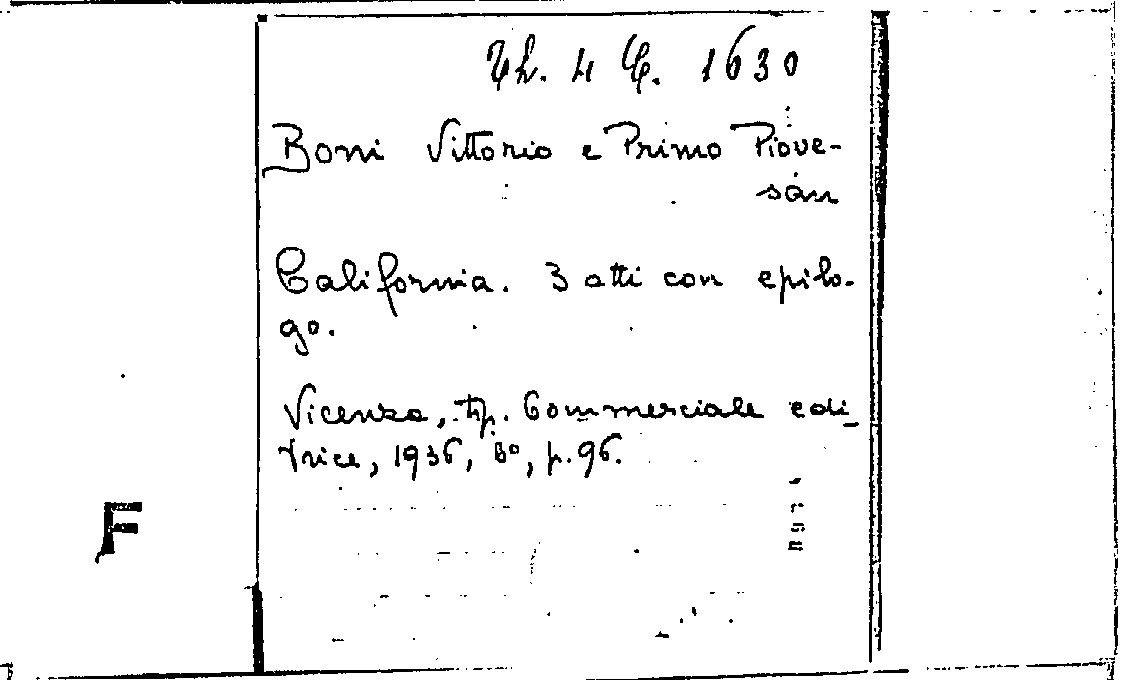 Th. 4 C. 1630
Boni Vittorio e Primo Piove-
san
California. 3 atti con epilo-
go.
Vicenza, tip. Commerciale edi
trice, 1936, 8°, p. 96.
F